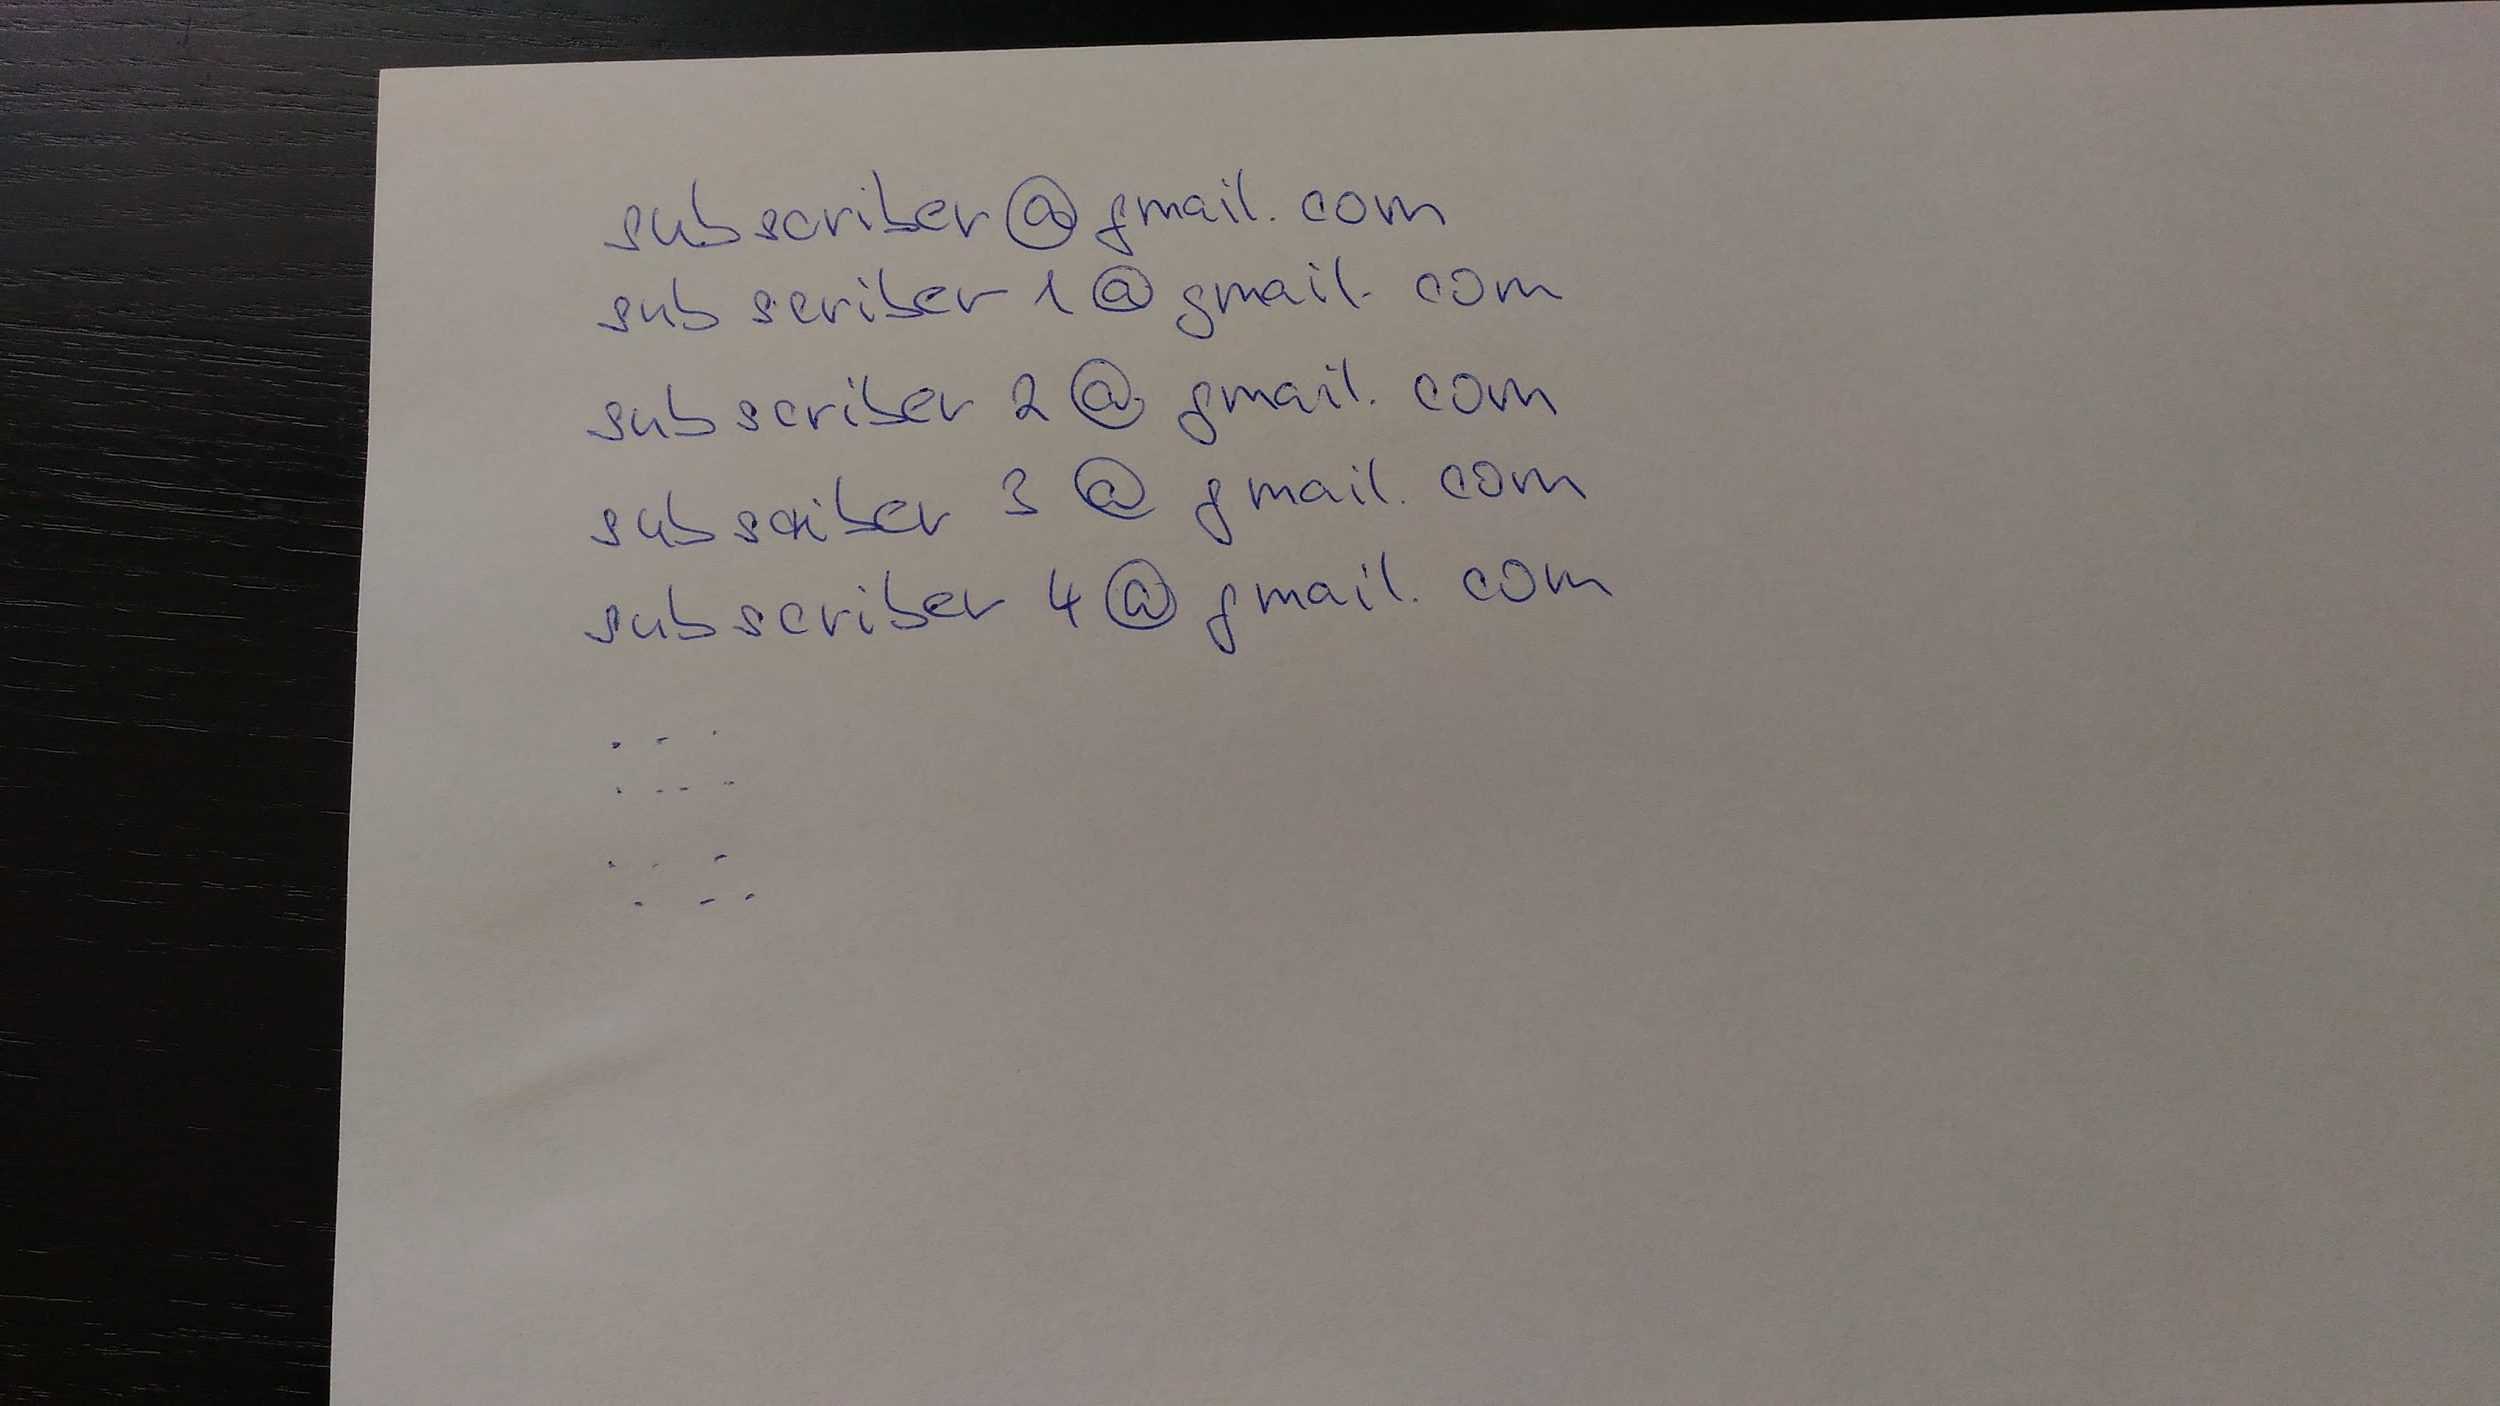 subscriber@gmail.com
subscriber1@gmail.com
subscriber2@gmail.com
subscriber3@gmail.com
subscriber4@gmail.com
. - .
. - - -
. . -
. - -